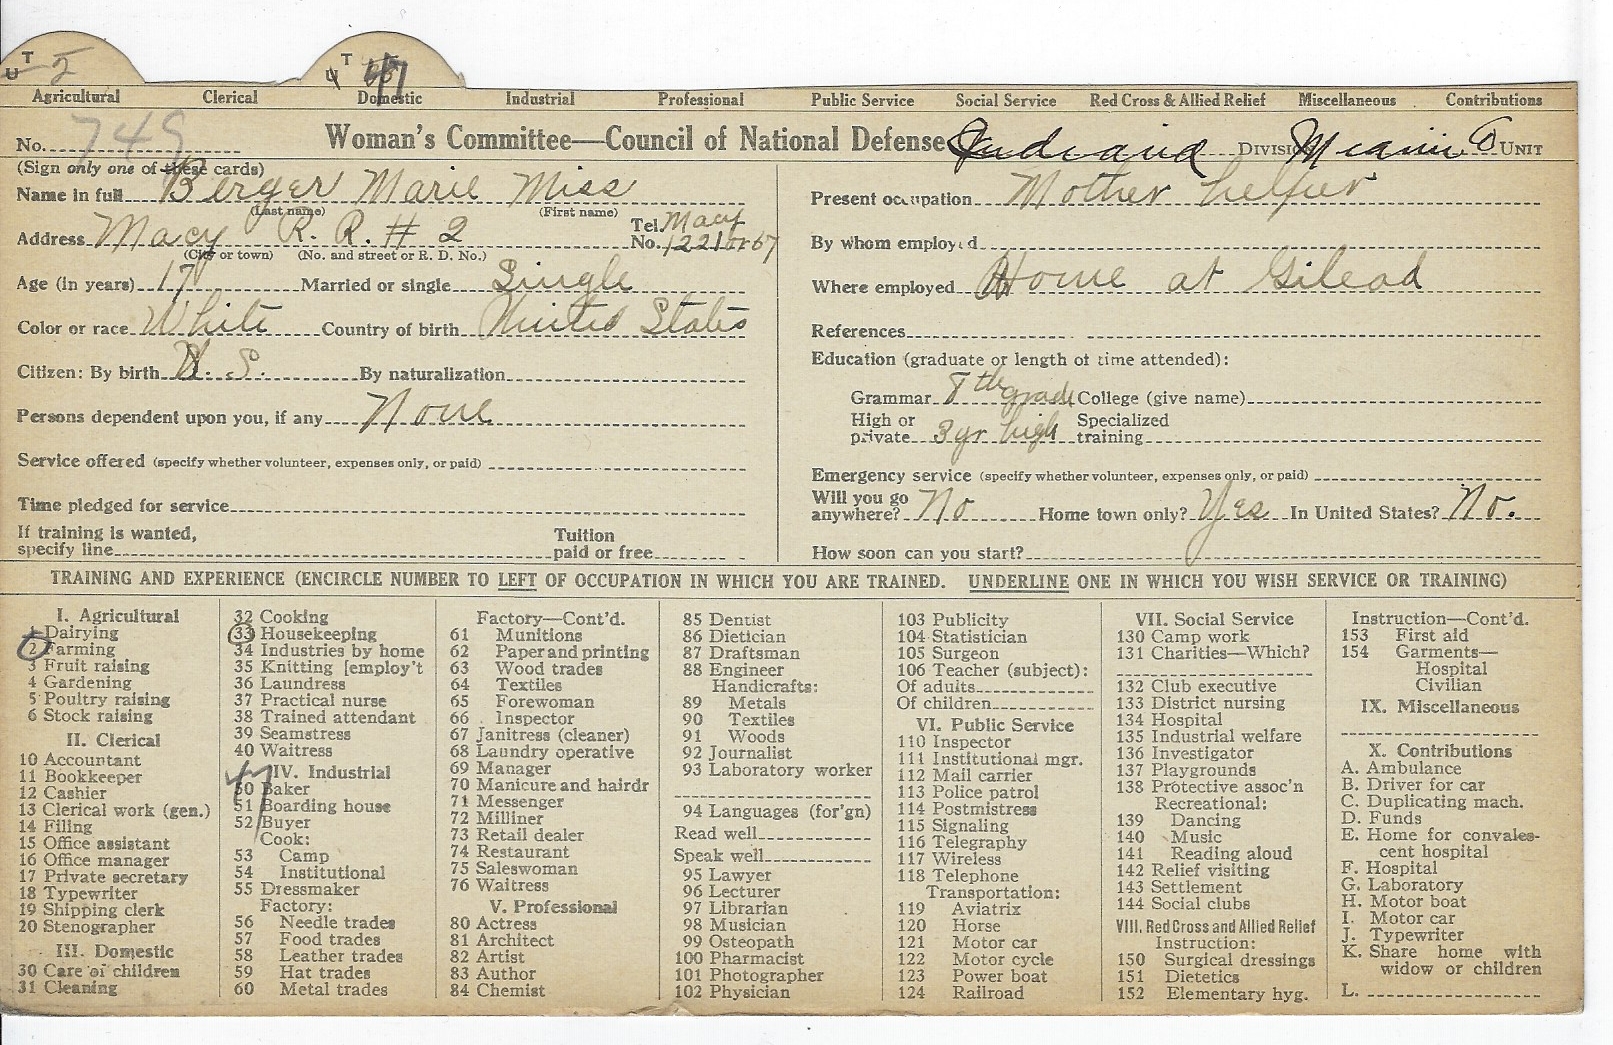 T U 5
T U 47
Agricultural Clerical Domestic Industrial Professional Public Service Social Service Red Cross & Allied Relief Miscellaneous Contributions
No. 749 Woman's Committee—Council of National Defense Indiana Division Miami Co Unit
(Sign only one of these cards)
Name in full Berger Marie Miss
(Last name) (First name)
Address Macy R. R. # 2 Tel. No. Macy 1221 or 67
(City or town) (No. and street or R. D. No.)
Age (in years) 17 Married or single Single
Color or race White Country of birth United States
Citizen: By birth U. S. By naturalization
Persons dependent upon you, if any None
Service offered (specify whether volunteer, expenses only, or paid)
Time pledged for service
If training is wanted, specify line Tuition paid or free
Present occupation Mother helper
By whom employed
Where employed Home at Gilead
References
Education (graduate or length of time attended):
Grammar 8th grade College (give name)
High or private 3 yr high Specialized training
Emergency service (specify whether volunteer, expenses only, or paid)
Will you go anywhere? No Home town only? Yes In United States? No.
How soon can you start?
TRAINING AND EXPERIENCE (ENCIRCLE NUMBER TO LEFT OF OCCUPATION IN WHICH YOU ARE TRAINED. UNDERLINE ONE IN WHICH YOU WISH SERVICE OR TRAINING)
I. Agricultural
1 Dairying
2 Farming
3 Fruit raising
4 Gardening
5 Poultry raising
6 Stock raising
II. Clerical
10 Accountant
11 Bookkeeper
12 Cashier
13 Clerical work (gen.)
14 Filing
15 Office assistant
16 Office manager
17 Private secretary
18 Typewriter
19 Shipping clerk
20 Stenographer
III. Domestic
30 Care of children
31 Cleaning
32 Cooking
33 Housekeeping
34 Industries by home
35 Knitting [employ't
36 Laundress
37 Practical nurse
38 Trained attendant
39 Seamstress
40 Waitress
47
IV. Industrial
50 Baker
51 Boarding house
52 Buyer
Cook:
53 Camp
54 Institutional
55 Dressmaker
Factory:
56 Needle trades
57 Food trades
58 Leather trades
59 Hat trades
60 Metal trades
Factory—Cont'd.
61 Munitions
62 Paper and printing
63 Wood trades
64 Textiles
65 Forewoman
66 Inspector
67 Janitress (cleaner)
68 Laundry operative
69 Manager
70 Manicure and hairdr
71 Messenger
72 Milliner
73 Retail dealer
74 Restaurant
75 Saleswoman
76 Waitress
V. Professional
80 Actress
81 Architect
82 Artist
83 Author
84 Chemist
85 Dentist
86 Dietician
87 Draftsman
88 Engineer
Handicrafts:
89 Metals
90 Textiles
91 Woods
92 Journalist
93 Laboratory worker
94 Languages (for'gn)
Read well
Speak well
95 Lawyer
96 Lecturer
97 Librarian
98 Musician
99 Osteopath
100 Pharmacist
101 Photographer
102 Physician
103 Publicity
104 Statistician
105 Surgeon
106 Teacher (subject):
Of adults
Of children
VI. Public Service
110 Inspector
111 Institutional mgr.
112 Mail carrier
113 Police patrol
114 Postmistress
115 Signaling
116 Telegraphy
117 Wireless
118 Telephone
Transportation:
119 Aviatrix
120 Horse
121 Motor car
122 Motor cycle
123 Power boat
124 Railroad
VII. Social Service
130 Camp work
131 Charities—Which?
132 Club executive
133 District nursing
134 Hospital
135 Industrial welfare
136 Investigator
137 Playgrounds
138 Protective assoc'n
Recreational:
139 Dancing
140 Music
141 Reading aloud
142 Relief visiting
143 Settlement
144 Social clubs
VIII. Red Cross and Allied Relief
Instruction:
150 Surgical dressings
151 Dietetics
152 Elementary hyg.
Instruction—Cont'd.
153 First aid
154 Garments—
Hospital
Civilian
IX. Miscellaneous
X. Contributions
A. Ambulance
B. Driver for car
C. Duplicating mach.
D. Funds
E. Home for convales-
cent hospital
F. Hospital
G. Laboratory
H. Motor boat
I. Motor car
J. Typewriter
K. Share home with
widow or children
L.